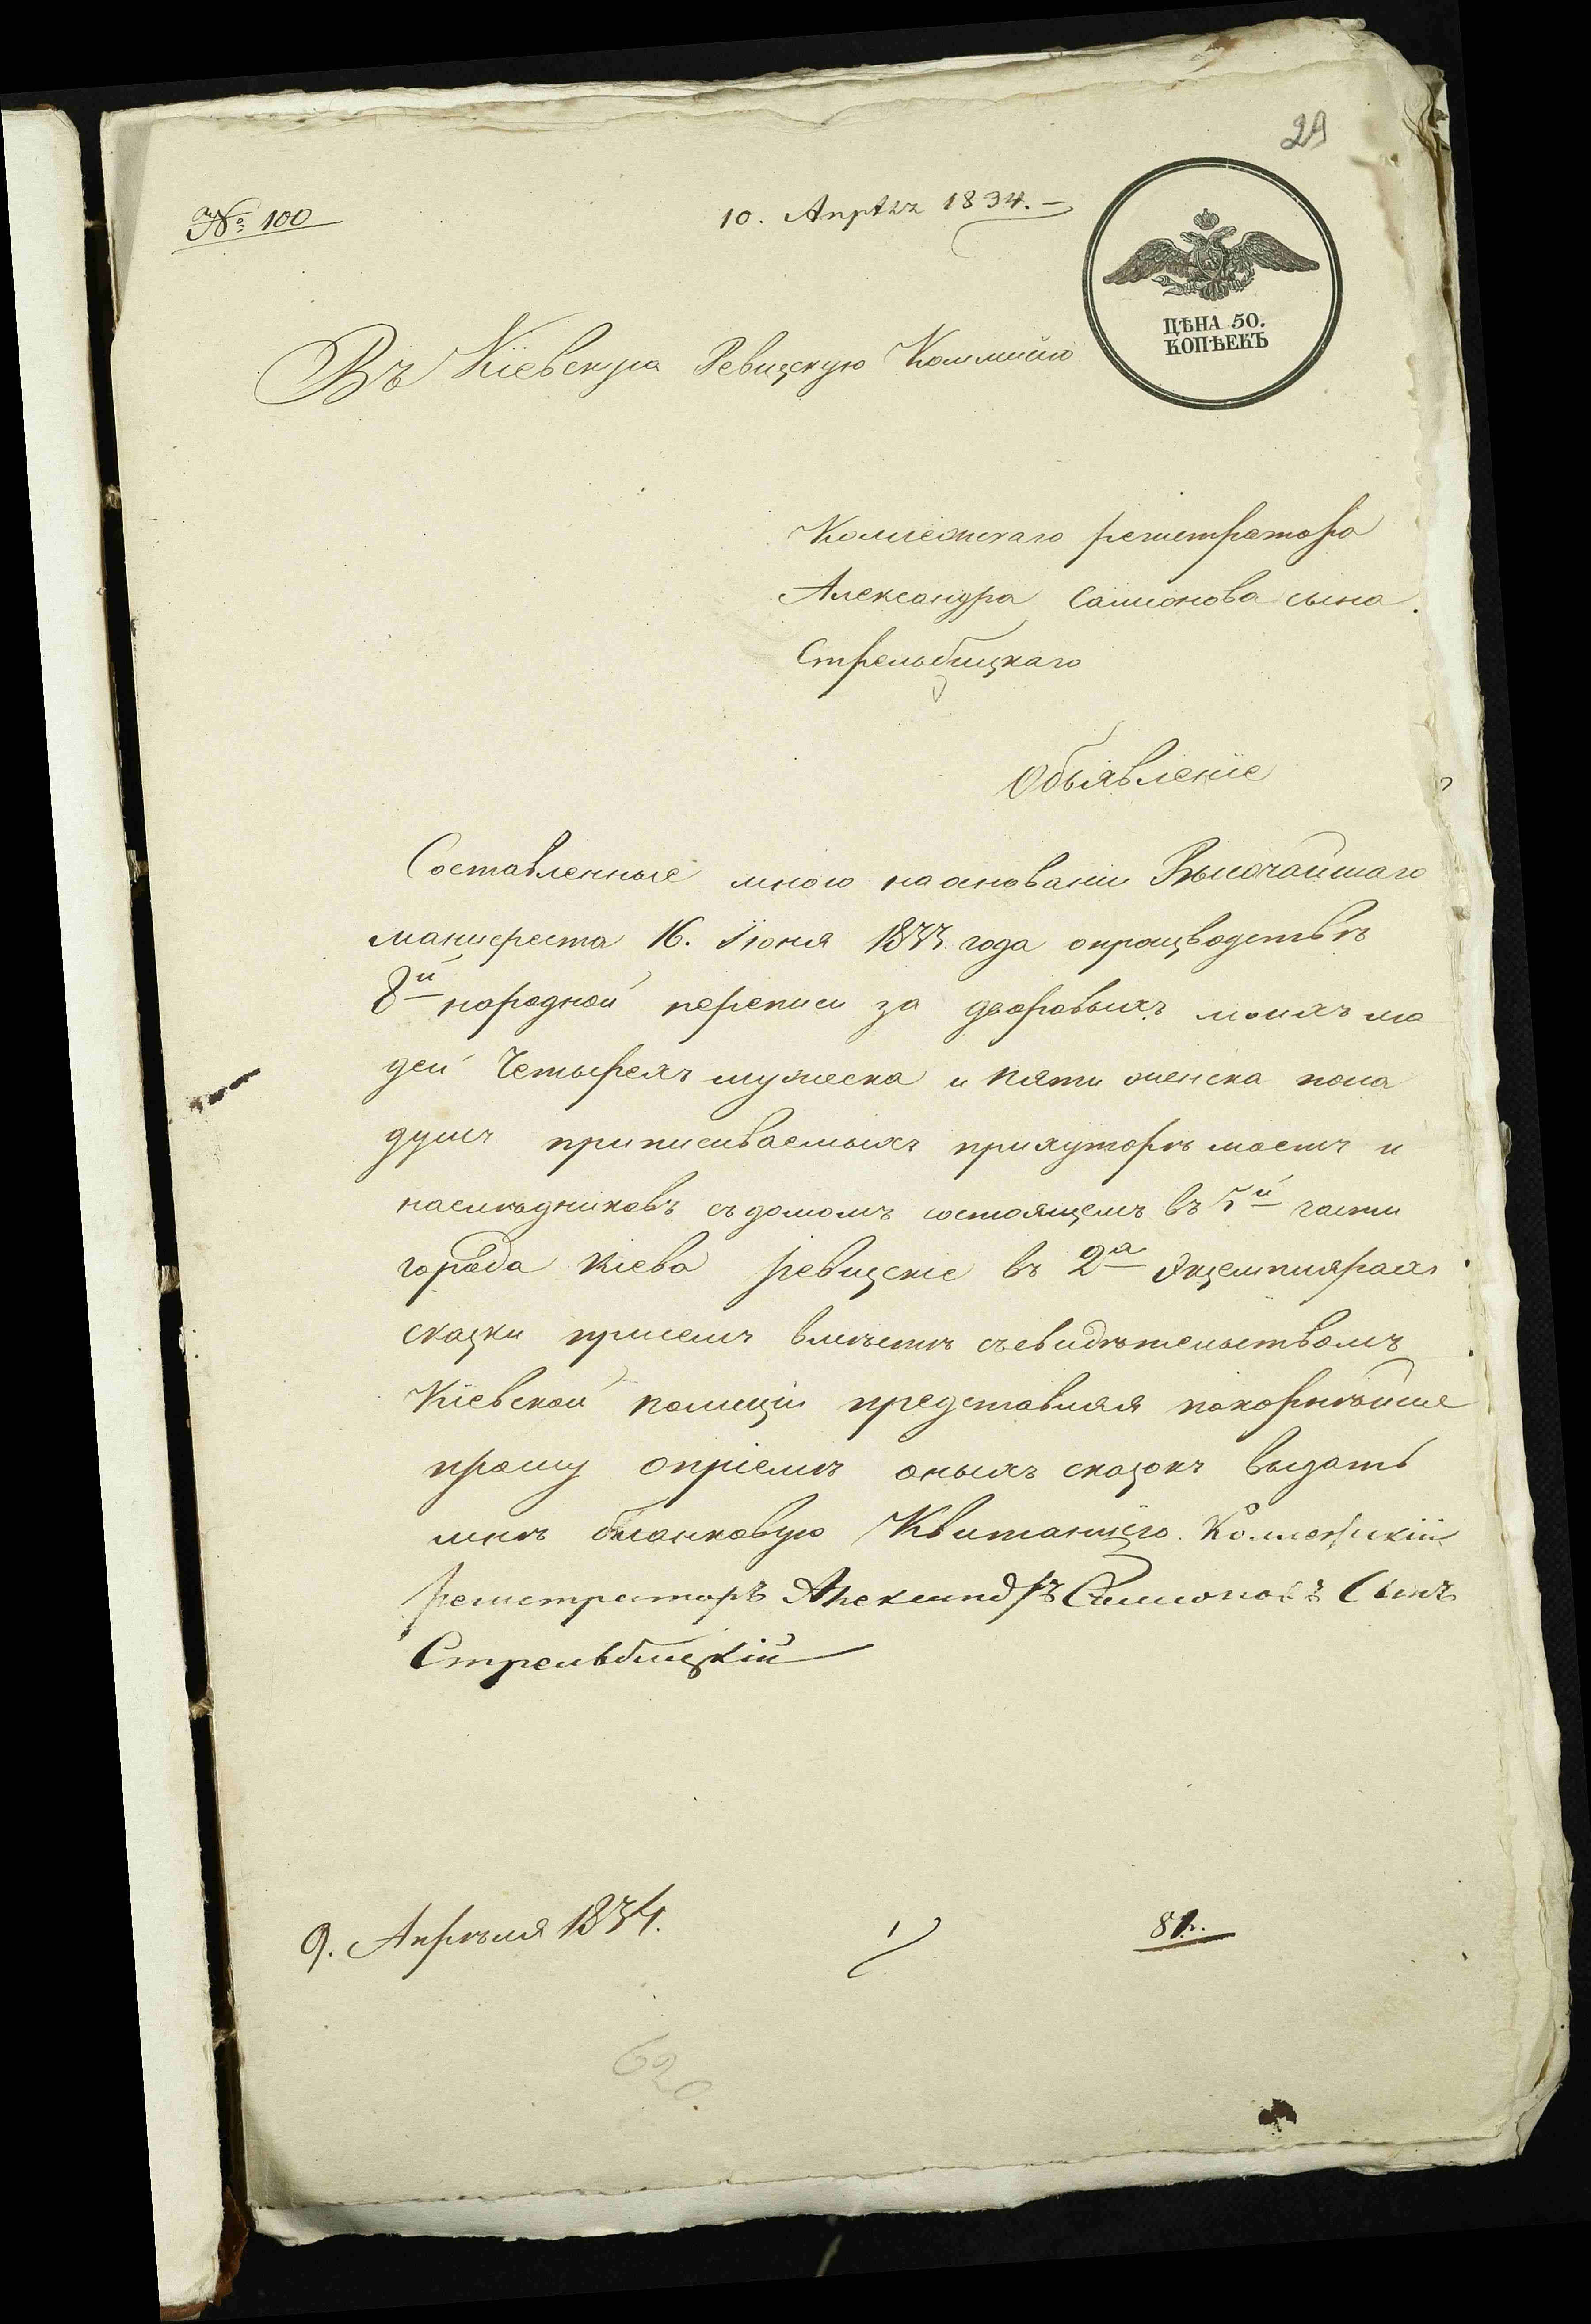 29
№ 100
10. Апрѣля 1834.
ЦѢНА 50.
КОПѢЕКЪ
Въ Кіевскую Ревизскую Коммисію
Коллежскаго регистратора
Александра Самионова сына
Стрельбицкаго
Объявленіе
Составленные мною наосновании Высочайшаго
манифеста 16. Іюня 1833. года опроизводствѣ
8й народной переписи за дворовыхъ моихъ лю
дей Четырехъ мужеска и пяти женска пола
душъ приписиваемыхъ прихуторѣ моемъ и
наслѣдниковъ съдомомъ состоящемъ въ 5й части
города Кіева ревизскіе въ 2а Экземплярахъ
сказки присемъ вмѣстѣ съсвидѣтельствомъ
Кіевской полиціи представляя покорнѣйше
прошу опріемѣ оныхъ сказокъ выдать
мнѣ бланковую Квитанцію. Коллежскій
регистраторъ Александръ Самионовъ Сынъ
Стрельбицкій
9. Апрѣля 1834.
81.
620.